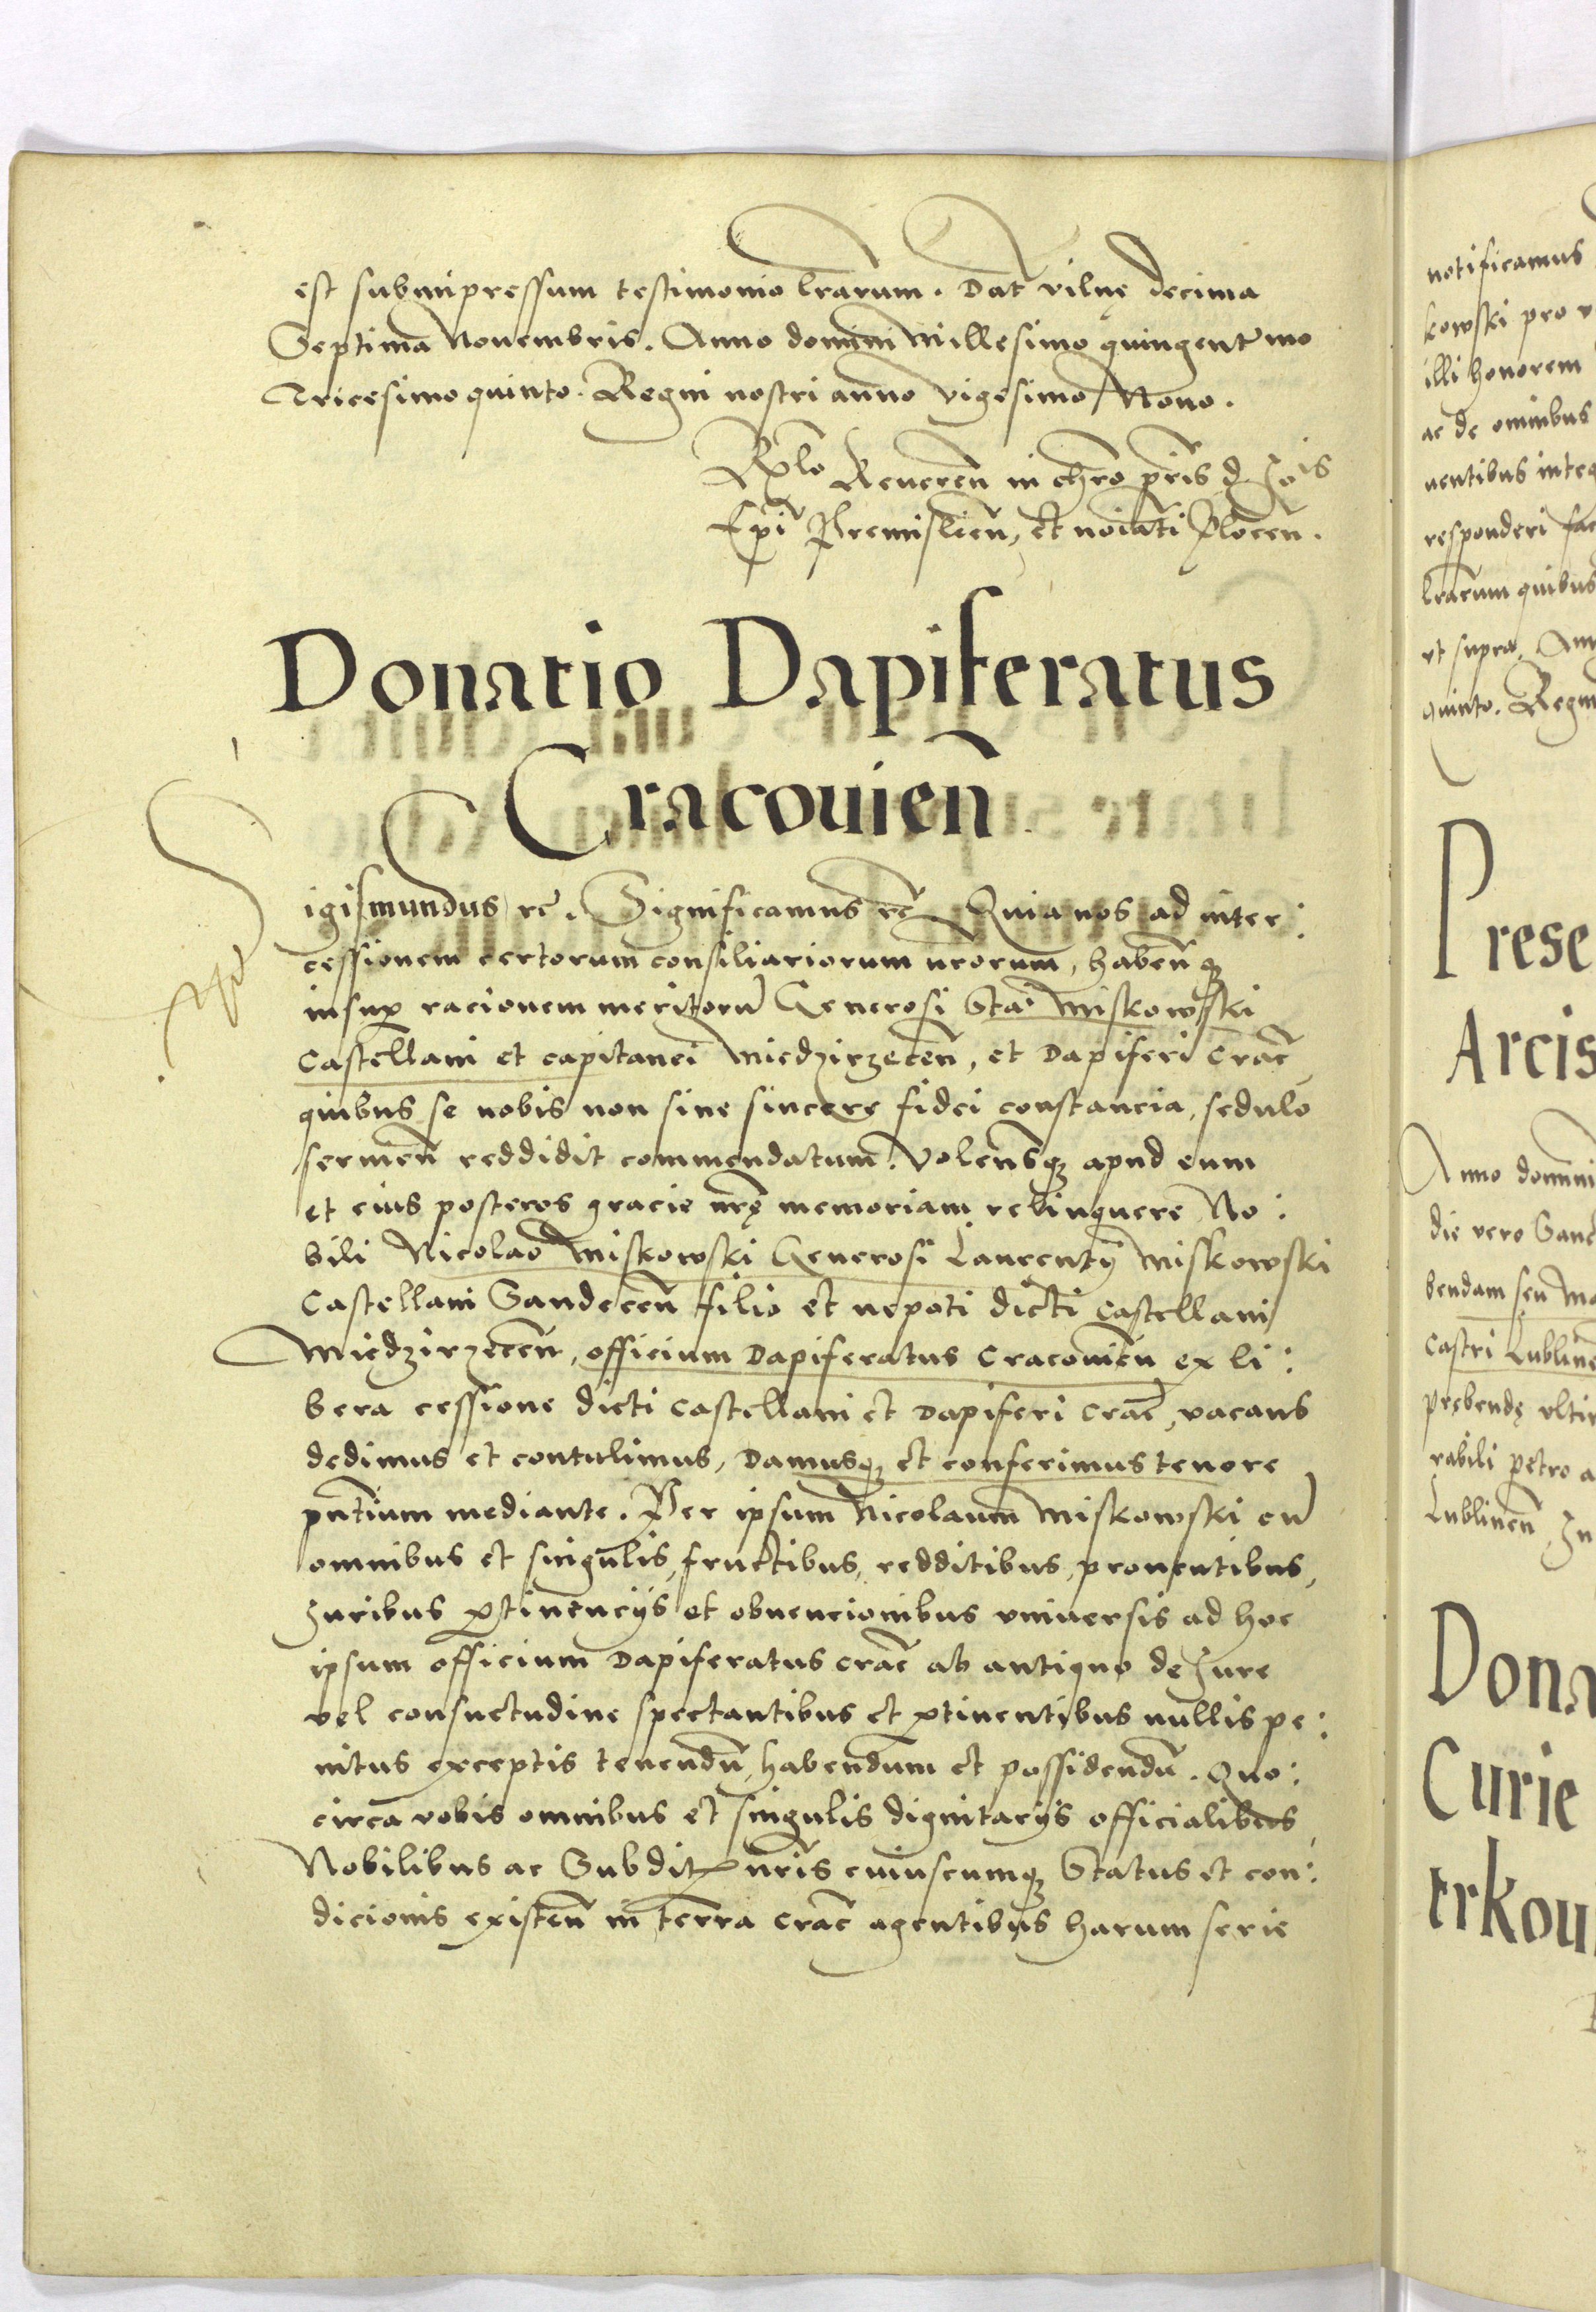 est subimpressum testimonio lrarum. Dat vilnę decima
Septima Nouembris. Anno domini Millesimo quingentmo
Tricesimo quinto. Regni nostri anno vigesimo Nono.
Rlo Reueren in chro pris d Jois
Epi Premislien, et noiati Plocen.
Donatio Dapiferatus
Cracouien
Sigismundus rc. Significamus rc Quia nos ad inter:
cessionem certorum consiliariorum nrorum, haben q
insup racionem meritoru Generosi Sta. Miskowski
Castellani et capitanei Miedzirzecen, et Dapiferi Crac
quibus se nobis non sine sincere fidei constancia, sedulo
seruien reddidit commendatum. Volensq apud eum
et eius posteros gracie nrę memoriam relinquere No:
bili Nicolao Miskowski Generosi Laurentij Miskowski
Castellani Sandecen filio et nepoti dicti Castellani
Miedzirzecen, officium Dapiferatus Cracouien ex li:
bera cessione dicti Castellani et Dapiferi Crac, vacans
dedimus et contulimus, Damusq et conferimus tenore
pntium mediante. Per ipsum Nicolaum Miskowski cu
omnibus et singulis, fructibus, redditibus, prouentibus,
Juribus ptinencijs et obuencionibus vniuersis ad hoc
ipsum officium Dapiferatus Crac ab antiquo de Jure
vel consuetudine spectantibus et ptinentibus nullis pe:
nitus exceptis tenendu, habendum et possidendu. Quo:
circa vobis omnibus et singulis dignitarijs officialibus,
Nobilibus ac Subdit nris cuiuscumq Status et con:
dicionis existen in terra Crac agentibus harum serie
notificamus
kowski pro v
illi honorem
ac de omnibus
uentibus integ
responderi fac
lrarum quibus
vt supra. Ann
quinto. Regni
Prese
Arcis
Anno domini
die vero Sanc
bendam seu Ma
Castri Lubline
prębendę vltim
rabili petro a
Lublinen Ju
Dona
Curie
trkou